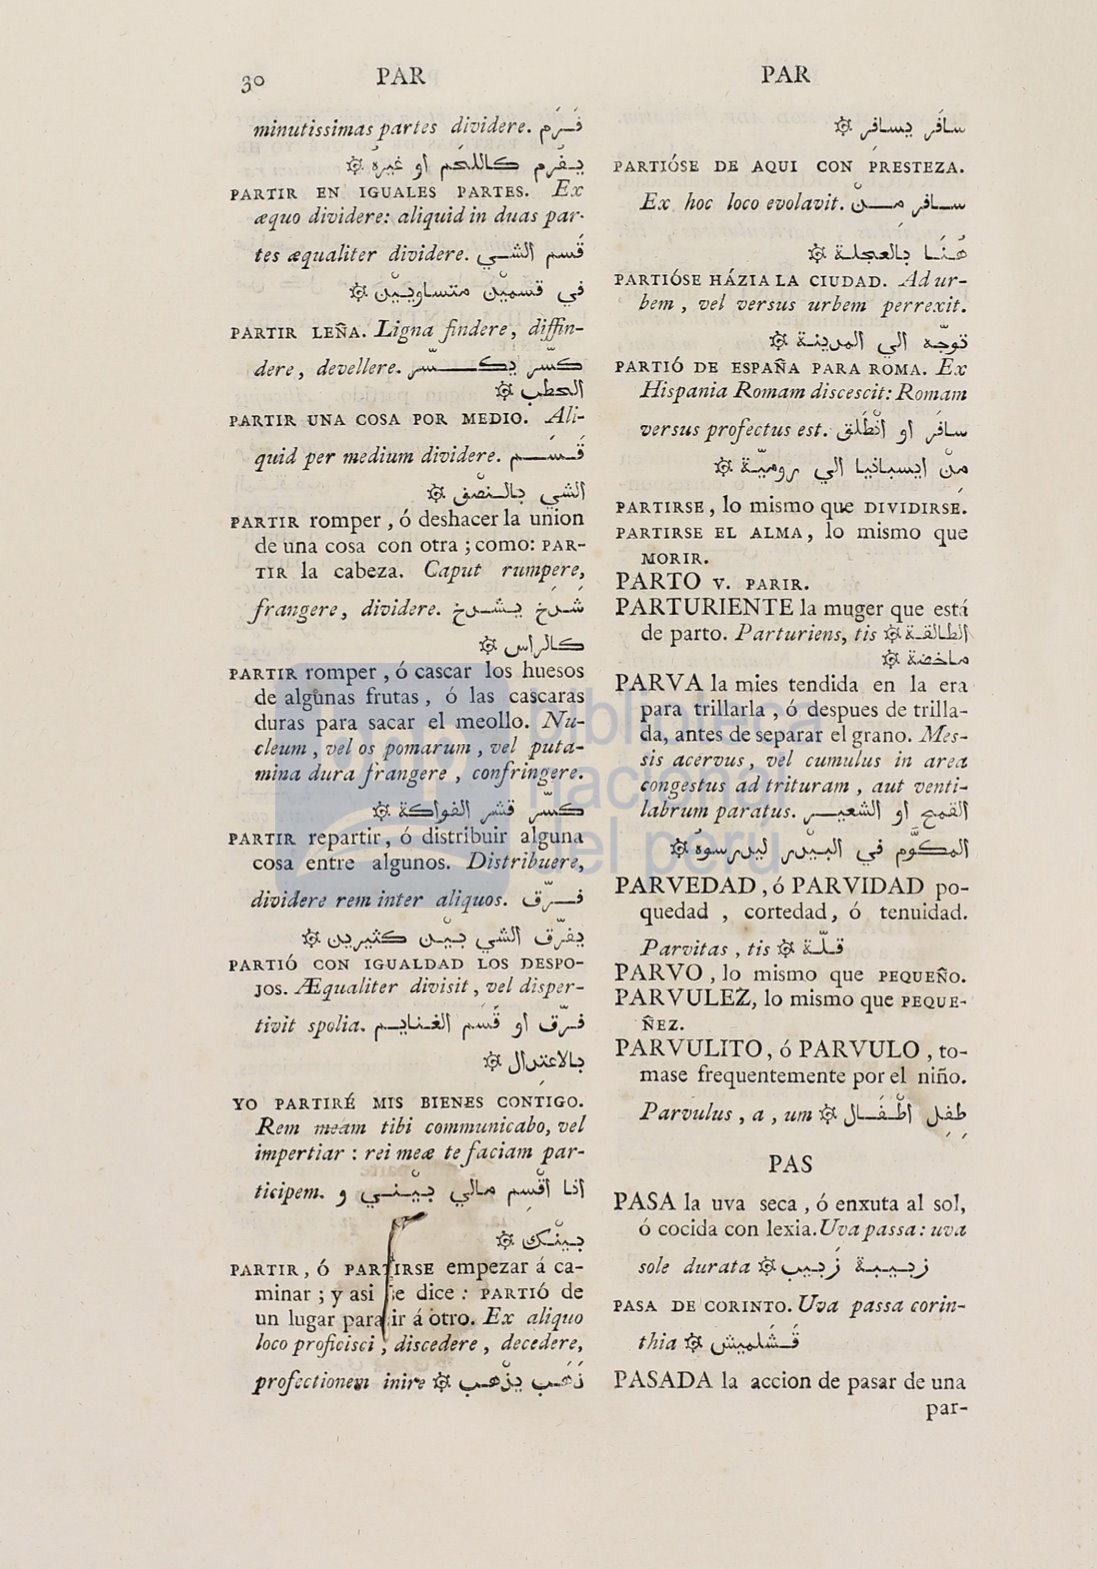 30 PAR PAR
minutissimas partes dividere. فَرَم
يفرُم كاللحَم او غيرهُ ۞
PARTIR EN IGUALES PARTES. Ex
æquo dividere: aliquid in duas par-
tes æqualiter dividere. قَسم الشي
في قسميْن متساوييْن ۞
PARTIR LEÑA. Ligna findere, diffin-
dere, devellere. كسّر يكسّر
الحطب ۞
PARTIR UNA COSA POR MEDIO. Ali-
quid per medium dividere. قَسَم
الشي بالنصْف ۞
PARTIR romper, ó deshacer la union
de una cosa con otra; como: PAR-
TIR la cabeza. Caput rumpere,
frangere, dividere. شَدَخ يشدخ
كالراس ۞
PARTIR romper, ó cascar los huesos
de algunas frutas, ó las cascaras
duras para sacar el meollo. Nu-
cleum, vel os pomarum, vel puta-
mina dura frangere, confringere.
كسّر قشر الفواكة ۞
PARTIR repartir, ó distribuir alguna
cosa entre algunos. Distribuere,
dividere rem inter aliquos. فرّق
يفرّق الشي بيْن كثيرين ۞
PARTIÓ CON IGUALDAD LOS DESPO-
JOS. Æqualiter divisit, vel disper-
tivit spolia. فرّق او قَسَم الغنايم
بالاعتدال ۞
YO PARTIRÉ MIS BIENES CONTIGO.
Rem meam tibi communicabo, vel
impertiar: rei meæ te faciam par-
ticipem. انا اقْسِم مالي بيْني و
بيْنك ۞
PARTIR, Ó PARTIRSE empezar á ca-
minar; y asi se dice: PARTIÓ de
un lugar para ir á otro. Ex aliquo
loco proficisci, discedere, decedere,
profectionem inire ۞ ذَهَب يذْهب
سافَر يسافر ۞
PARTIÓSE DE AQUI CON PRESTEZA.
Ex hoc loco evolavit. سافر مِنْ
هُنَا بالعجلة ۞
PARTIÓSE HÁZIA LA CIUDAD. Ad ur-
bem, vel versus urbem perrexit.
توجّه الي المدينة ۞
PARTIÓ DE ESPAÑA PARA ROMA. Ex
Hispania Romam discescit: Romam
versus profectus est. سافَر او انْطَلق
مِنْ ايسبانيا الي روميّة ۞
PARTIRSE, lo mismo que DIVIDIRSE.
PARTIRSE EL ALMA, lo mismo que
MORIR.
PARTO V. PARIR.
PARTURIENTE la muger que está
de parto. Parturiens, tis ۞ الطالقة
ماخضة ۞
PARVA la mies tendida en la era
para trillarla, ó despues de trilla-
da, antes de separar el grano. Mes-
sis acervus, vel cumulus in area
congestus ad trituram, aut venti-
labrum paratus. القمح او الشعير
المكوّم في البيْدر ليدرسوهُ ۞
PARVEDAD, ó PARVIDAD po-
quedad, cortedad, ó tenuidad.
Parvitas, tis ۞ قلّة
PARVO, lo mismo que PEQUEÑO.
PARVULEZ, lo mismo que PEQUE-
ÑEZ.
PARVULITO, ó PARVULO, to-
mase frequentemente por el niño.
Parvulus, a, um ۞ طِفِل اطْفَال
PAS
PASA la uva seca, ó enxuta al sol,
ó cocida con lexia. Uva passa: uva
sole durata ۞ زبيبة زَبيب
PASA DE CORINTO. Uva passa corin-
thia ۞ قَشَلميش
PASADA la accion de pasar de una
par-
biblioteca
nacional
del perú